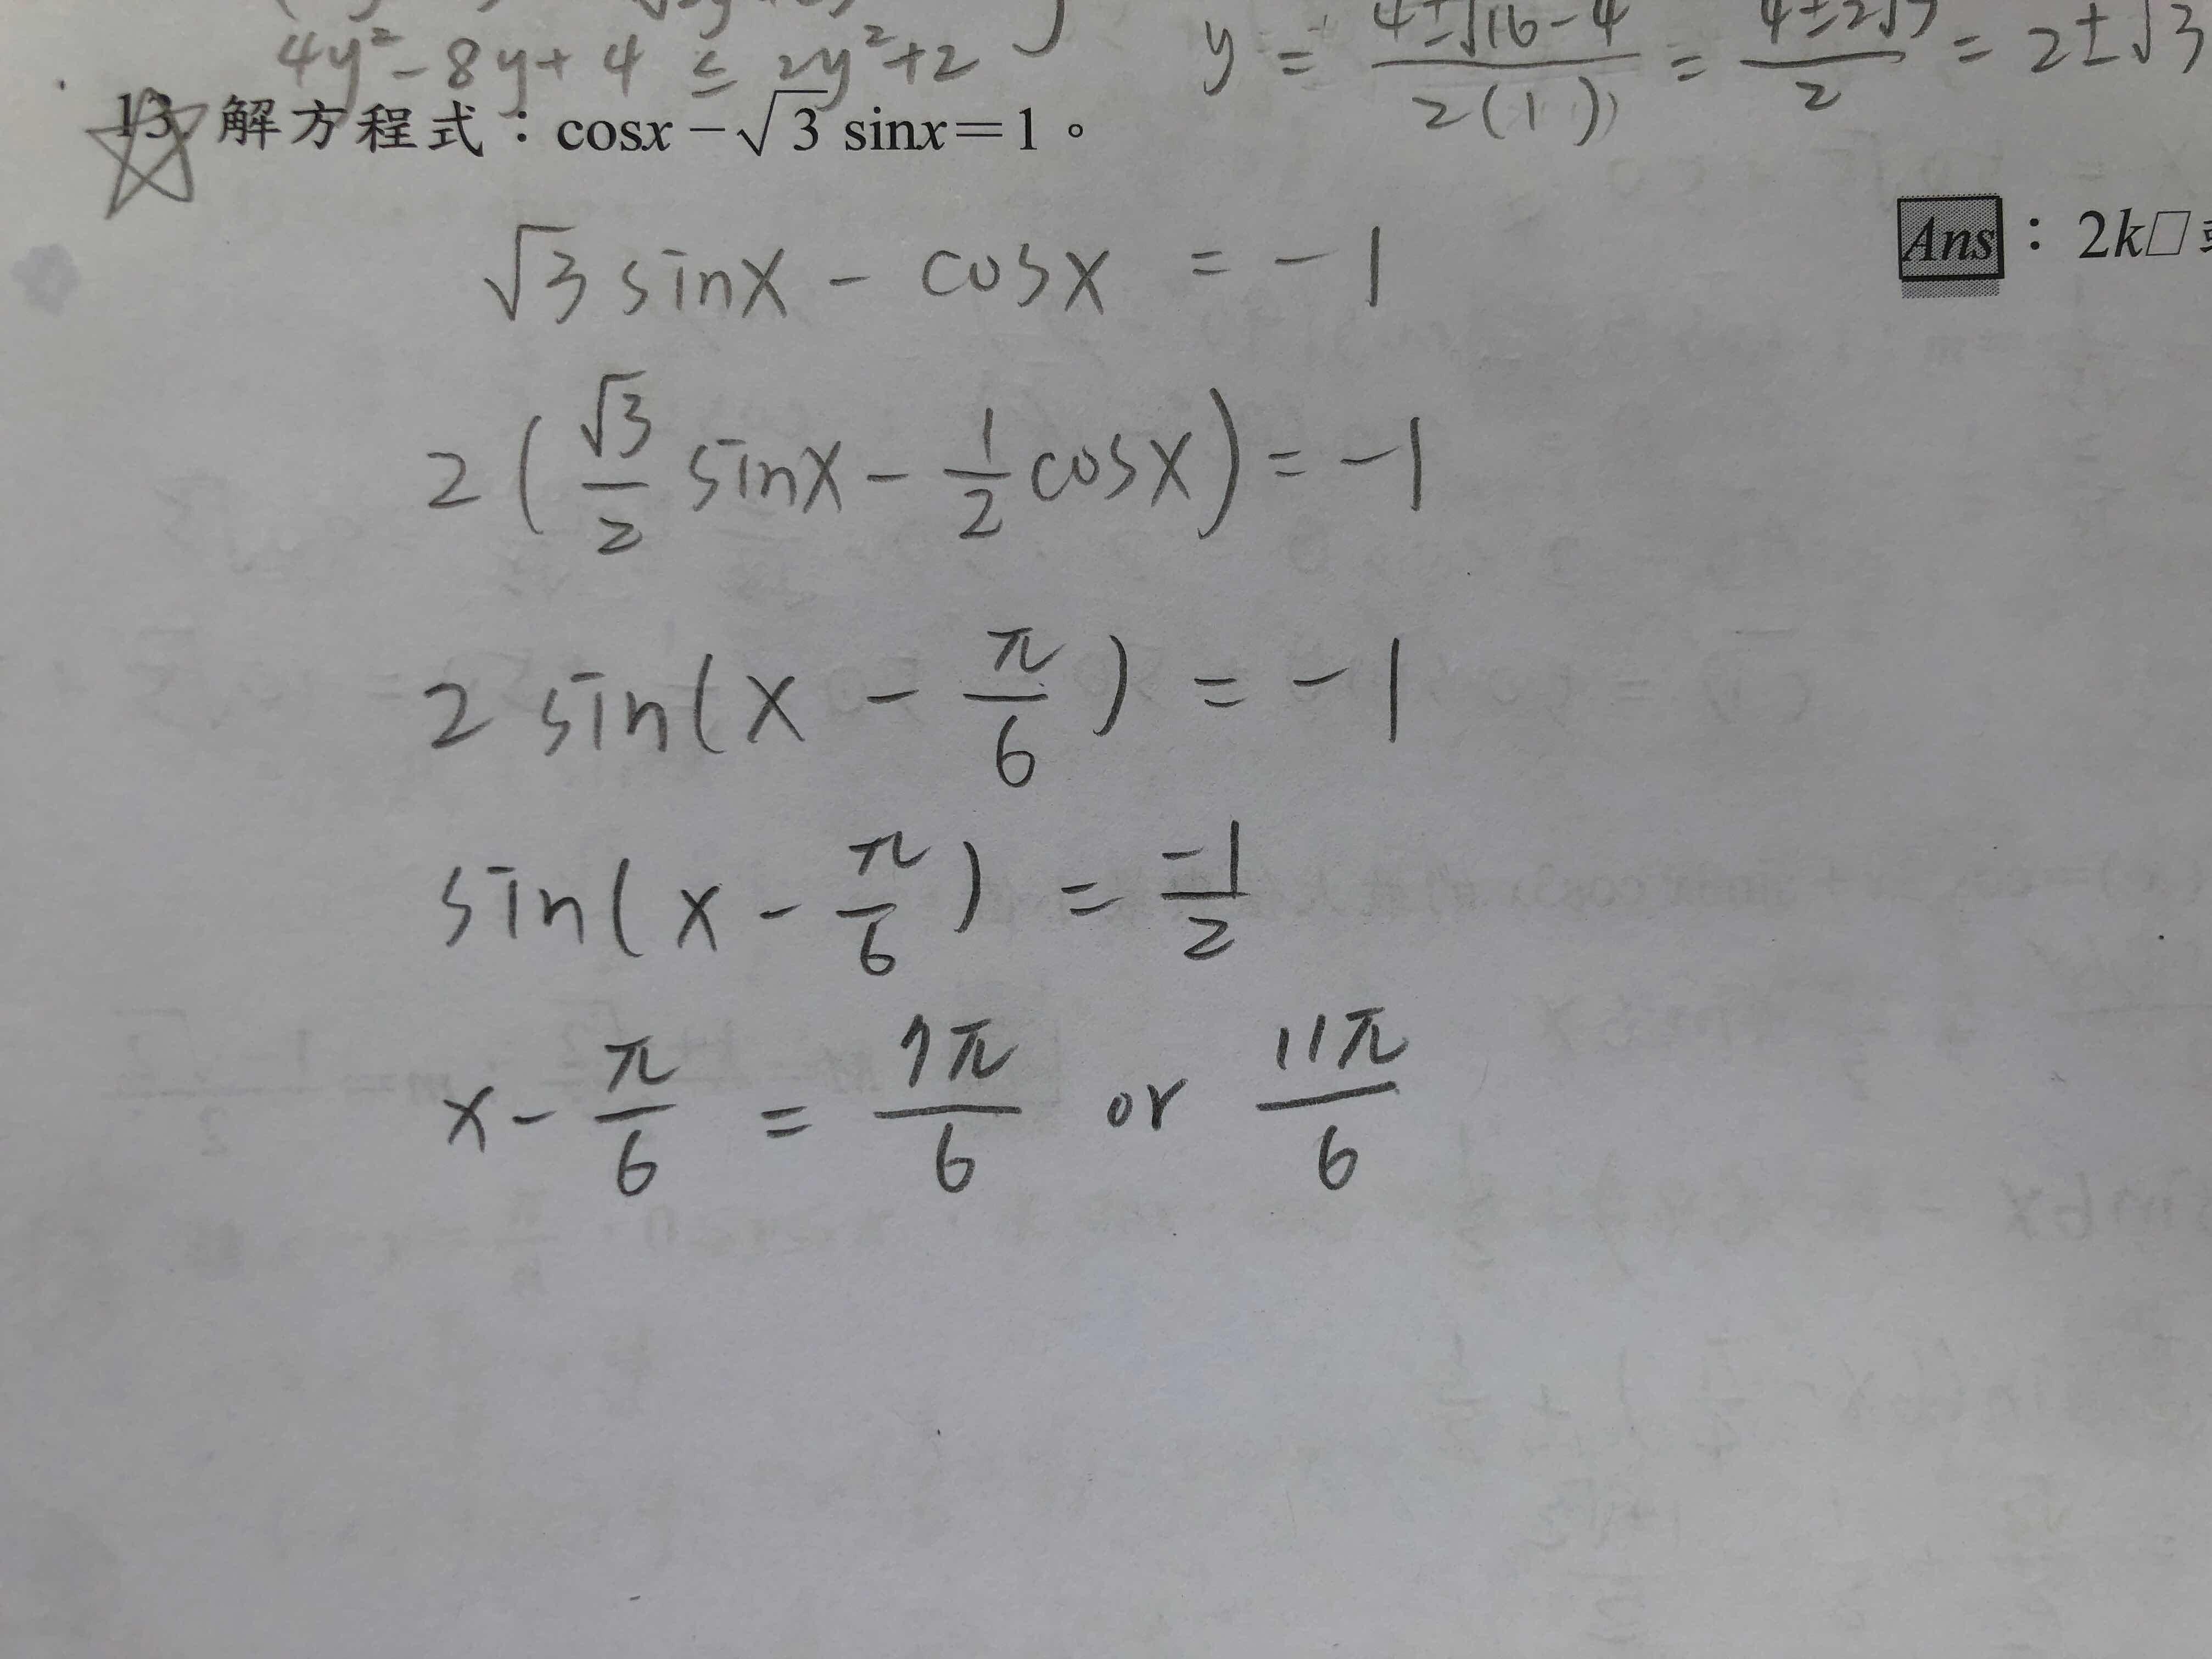 4y² - 8y + 4 ≤ 2y² + 2
y = (4±√16-4)/2(1) = /2 = 2±√3
13. 解方程式：cosx－√3 sinx＝1。
Ans：2k□
√3 sinx - cosx = -1
2(√3/2 sinx - 1/2 cosx) = -1
2 sin(x - π/6) = -1
sin(x - π/6) = -1/2
x - π/6 = 7π/6 or 11π/6